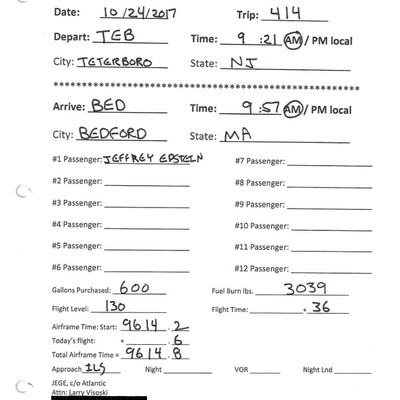 Date: 10/24/2017 Trip: 414
Depart: TEB Time: 9 :21 AM / PM local
City: TETERBORO State: NJ
************************************************************
Arrive: BED Time: 9 :57 AM / PM local
City: BEDFORD State: MA
#1 Passenger: JEFFREY EPSTEIN #7 Passenger:
#2 Passenger: #8 Passenger:
#3 Passenger: #9 Passenger:
#4 Passenger: #10 Passenger:
#5 Passenger: #11 Passenger:
#6 Passenger: #12 Passenger:
Gallons Purchased: 600 Fuel Burn lbs. 3039
Flight Level: 130 Flight Time: + 36
Airframe Time: Start: 9614 . 2
Today's flight: + . 6
Total Airframe Time = 9614 . 8
Approach ILS Night VOR Night Lnd
JEGE, c/o Atlantic
Attn: Larry Visoski